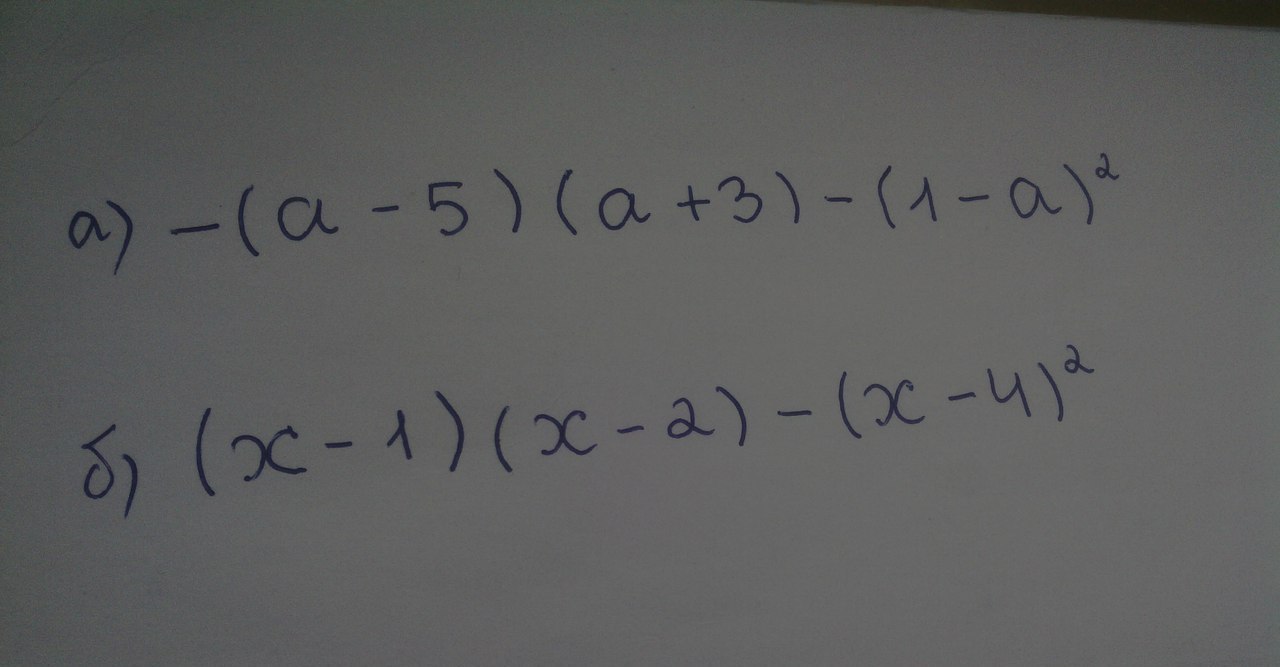 а) -(a - 5)(a + 3) - (1 - a)²
б) (x - 1)(x - 2) - (x - 4)²